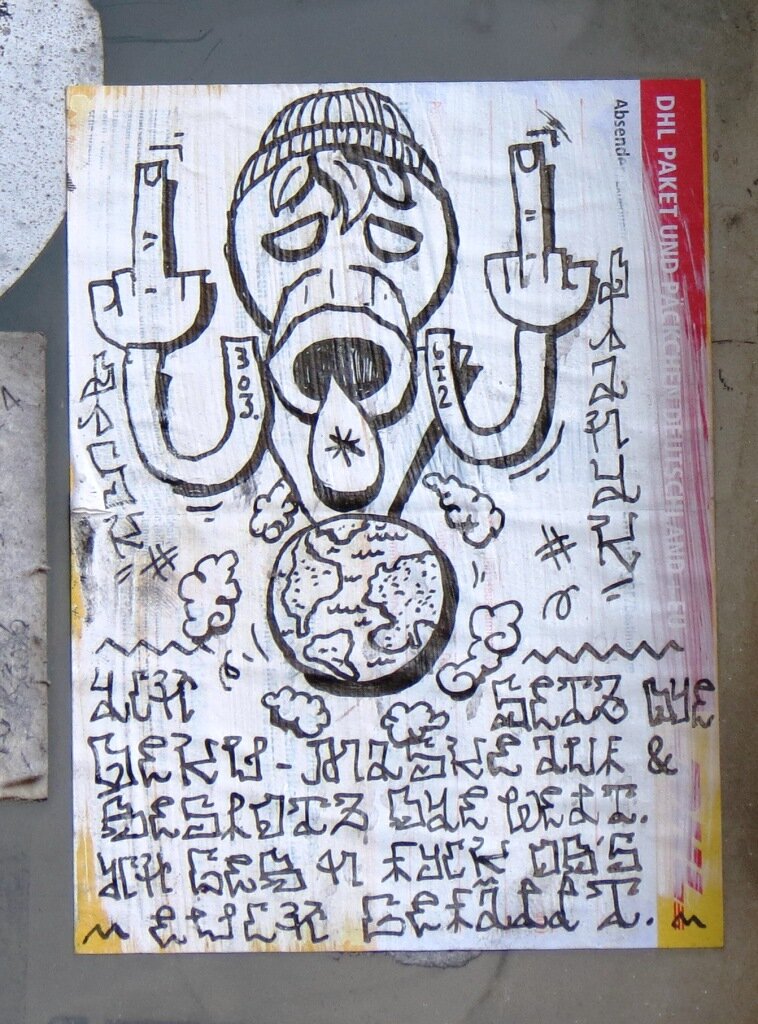 DHL PAKET UND PÄCKCHEN DEUTSCHLAND + EU
303.
ICH SETZ DIE
DEKU-MASKE AUF &
BESPOTZ DIE WELT.
ICH GEB 'N FUCK OB'S
EUCH GEFÄLLT.